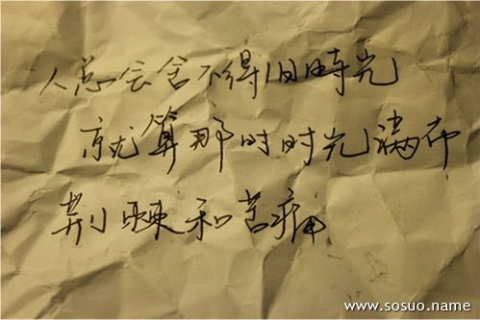 人总会舍不得旧時光
就算那时时光满布
荆棘和苦痛
www.sosuo.name